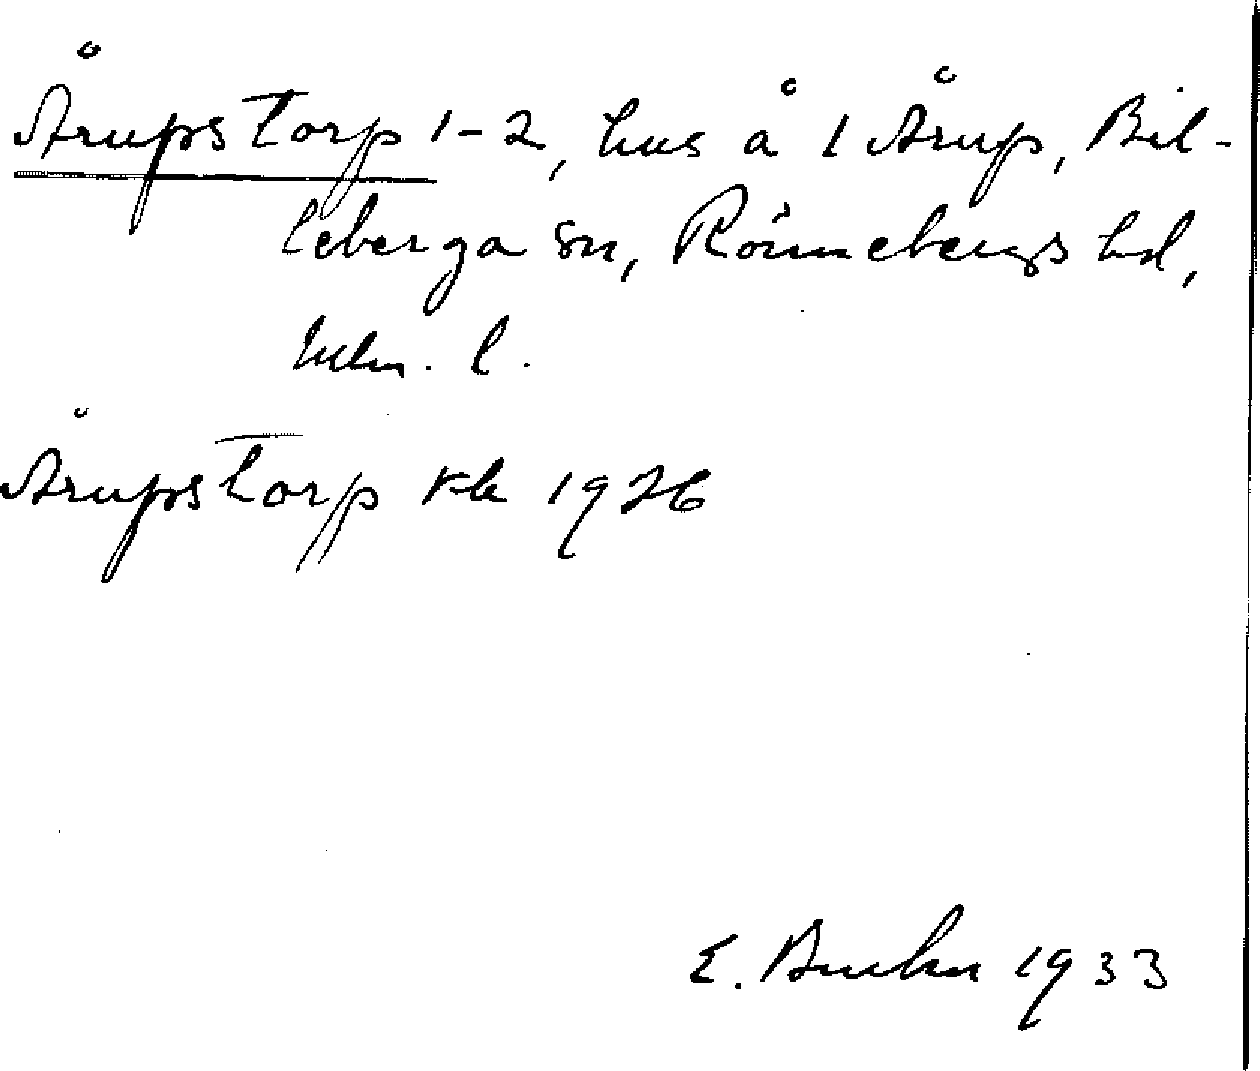 Årupstorp 1-2, hus å 1 Årup, Bil-
leberga sn, Rönnebergs hd,
Mlm. l.
Årupstorp kb 1926
E. 1933